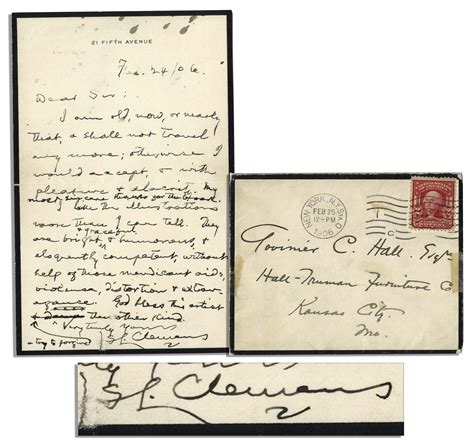 21 FIFTH AVENUE
Feb. 24/06.
Dear Sir:
I am old, now, or nearly
that, & shall not travel
any more; otherwise I
would accept, & with
pleasure & alacrity. My
most sincere thanks for the book.
Like the illustrations
more than I can tell. They
& graceful
are bright, & humorous, &
eloquently competent, without
help of those mendicant aids,
violence, distortion & extrav-
agance. God bless this artist
& damn the other kind.
Very truly yours
& try to forgive
S L. Clemens
NEW YORK, N.Y. STA. O
FEB 25
12-PM
1906
Hall, Esqr
Hall-Truman Furniture Co
Kansas City
Mo.
S L. Clemens